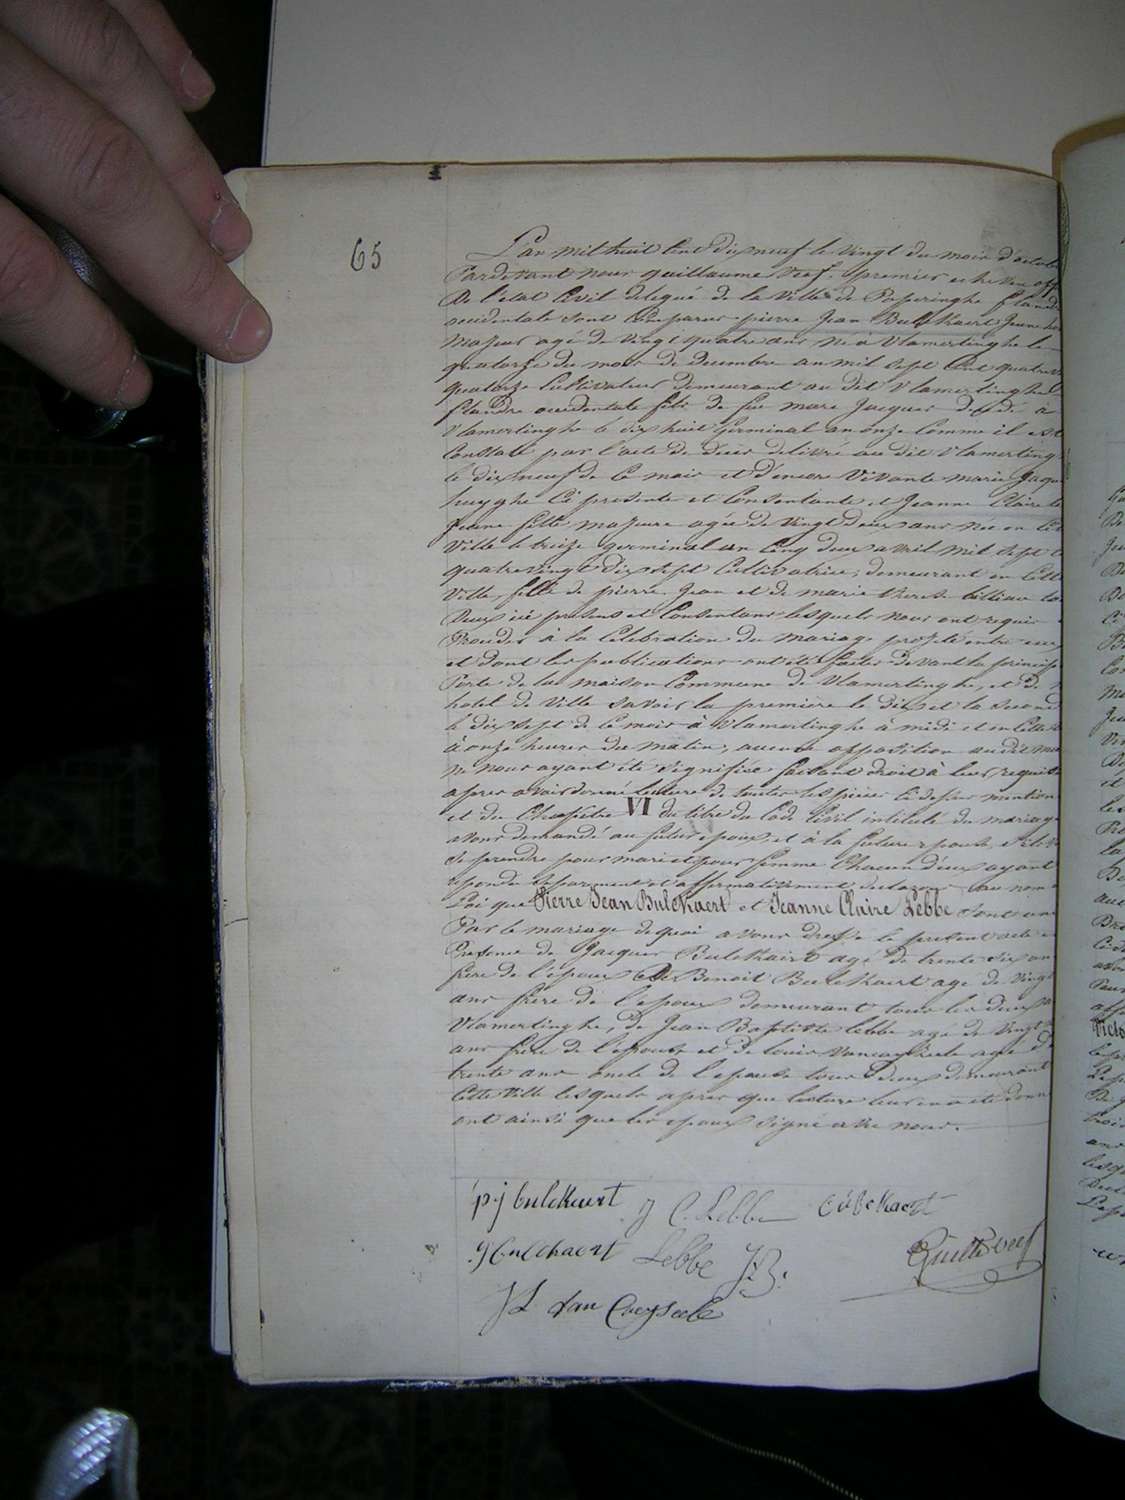 65
L'an mil huit Cent dix neuf le vingt du mois d'octob
Pardevant nous guillaume Neef, premier echevin off
De l'etat Civil delegué de la Ville de Poperinghe fland
occidentale sont Comparus pierre Jean Bulckaert Jeune ho
majeur agé de vingt quatre ans né a Vlamertinghe le
quatorze du mois de decembre an mil sept Cent quatrev
quatorze Cultivateur demeurant au dit Vlamertinghe
flandre occidentale fils de feu marc Jacques dcdé a
Vlamertinghe le dix huit germinal an onze Comme il est
Constaté par l'acte de deces delivré au dit Vlamerting
le dix neuf de Ce mois et d'encore Vivante marie Jaqu
huyghe Ci presente et Consentante et Jeanne Claire Le
Jeune fille majeure agée de vingt deux ans née en Cet
Ville le treize germinal an Cinq deux avril mil sept C
quatrevingt dix sept Cultivatrice, demeurant en Cette
Ville, fille de pierre Jean et de marie therese billiau to
Deux ici presens et Consentans lesquels nous ont requis
Proceder à la Celebration du mariage projeté entre eux
et dont les publications ont été faites devant la princip
Porte de la maison Commune de Vlamertinghe, et de
hotel de Ville savoir la premiere le dix et la second
le dix sept de Ce mois à Vlamertinghe à midi et en Cette
à onze heures du matin, aucune opposition au dit ma
ne nous ayant été signifiée faisant droit à leur requisit
apres avoir donné lecture de toutes les pieces Ci dessus mention
et du Chapitre VI du titre du Code Civil intitulé du mariage
avons demandé au futur epoux, et à la future epouse, s'ils v
se prendre pour mari et pour femme Chacun d'eux ayant
repondu separement et affirmativement declarons au nom
Loi que Pierre Jean Bulckaert et Jeanne Claire Lebbe sont un
Par le mariage de quoi avons dressé le present acte en
Presence de Jacques Bulckaert agé de trente six an
frère de l'époux de Benoit Bulckaert agé de ving
ans frère de l'epoux demeurant tous les deux a
Vlamertinghe, de Jean Baptiste Lebbe agé de vingt
ans frère de l'épouse et de louis vancayseele agé d
trente ans oncle de l'epouse tous deux demeurant
Cette Ville lesquels apres que lecture leur en a été donn
ont ainsi que les epoux signé avec nous.
pj bulckaert J C Lebbe
J bulckaert Lebbe J.B.
JL Van Cayseele